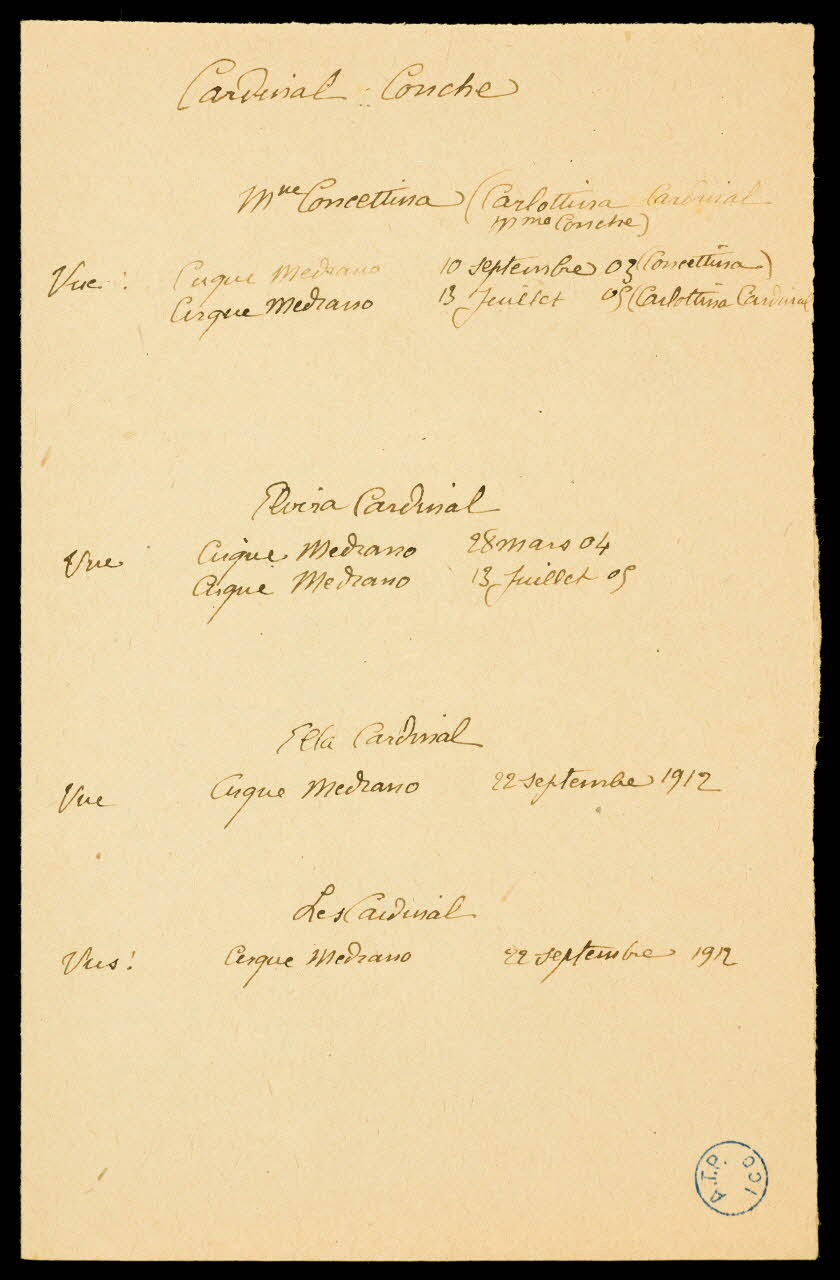 Cardinal - Conche
Mlle Concettina (Carlottina Cardinal
Mme Conche)
Vue : Cirque Medrano 10 septembre 03 (Concettina)
Cirque Medrano 13 Juillet 05 (Carlottina Cardinal
Elvira Cardinal
Vue Cirque Medrano 28 mars 04
Cirque Medrano 13 Juillet 05
Ella Cardinal
Vue Cirque Medrano 22 septembre 1912
Les Cardinal
Vus : Cirque Medrano 22 septembre 1912
A.T.P.